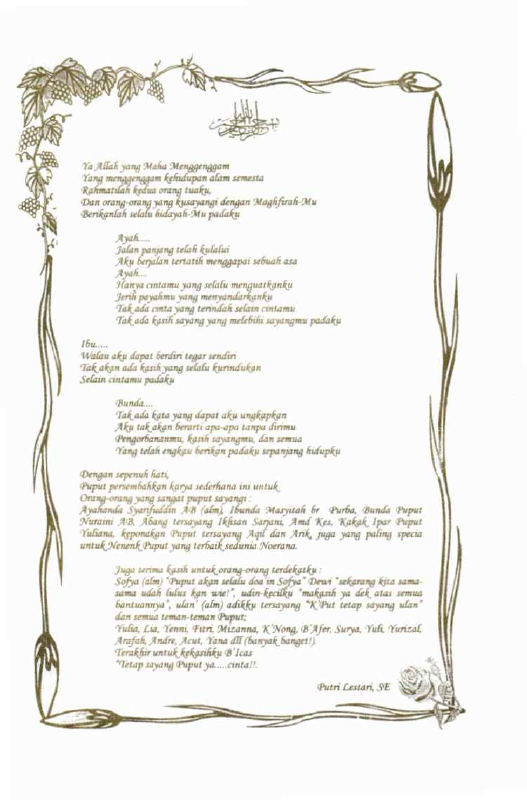 Ya Allah yang Maha Menggenggam
Yang menggenggam kehidupan alam semesta
Rahmatilah kedua orang tuaku,
Dan orang-orang yang kusayangi dengan Maghfirah-Mu
Berikanlah selalu hidayah-Mu padaku
Ayah.....
Jalan panjang telah kulalui
Aku berjalan tertatih menggapai sebuah asa
Ayah....
Hanya cintamu yang selalu menguatkanku
Jerih payahmu yang menyandarkanku
Tak ada cinta yang terindah selain cintamu
Tak ada kasih sayang yang melebihi sayangmu padaku
Ibu.....
Walau aku dapat berdiri tegar sendiri
Tak akan ada kasih yang selalu kurindukan
Selain cintamu padaku
Bunda....
Tak ada kata yang dapat aku ungkapkan
Aku tak akan berarti apa-apa tanpa dirimu
Pengorbananmu, kasih sayangmu, dan semua
Yang telah engkau berikan padaku sepanjang hidupku
Dengan sepenuh hati,
Puput persembahkan karya sederhana ini untuk
Orang-orang yang sangat puput sayangi :
Ayahanda Syarifuddin AB (alm), Ibunda Masyitah br Purba, Bunda Puput
Nuraini AB, Abang tersayang Ikhsan Sarjani, Amd Kes, Kakak Ipar Puput
Yuliana, keponakan Puput tersayang Aqil dan Arik, juga yang paling specia
untuk Nenenk Puput yang terbaik sedunia Noerana.
Juga terima kasih untuk orang-orang terdekatku :
Sofya (alm) "Puput akan selalu doa in Sofya" Dewi "sekarang kita sama-
sama udah lulus kan wie!", udin-kecilku "makasih ya dek atas semua
bantuannya", ulan' (alm) adikku tersayang "K'Put tetap sayang ulan"
dan semua teman-teman Puput;
Yulia, Lia, Yenni, Fitri, Mizanna, K'Nong, B'Afer, Surya, Yuli, Yurizal,
Arafah, Andre, Acut, Yana dll (banyak banget!).
Terakhir untuk kekasihku B'Icas
"Tetap sayang Puput ya.....cinta!!.
Putri Lestari, SE